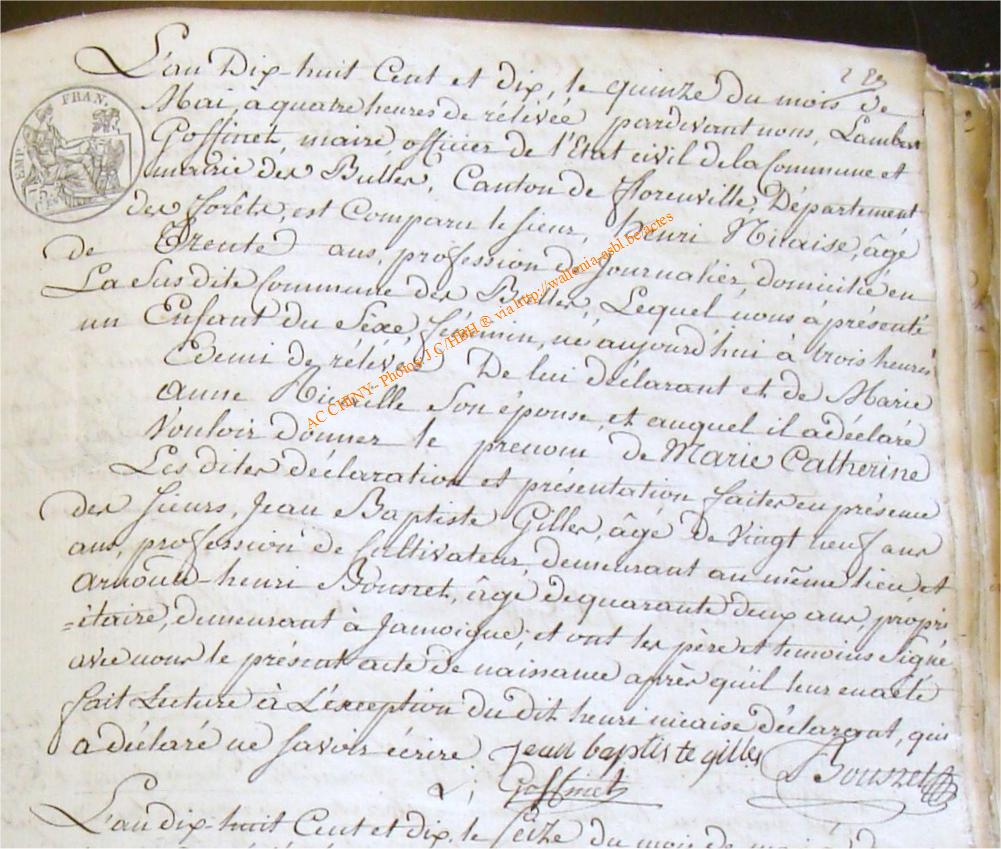 L'an Dix-huit Cent et dix, le quinze du mois de
Mai, a quatre heures de rélévée pardevant nous, Lambert
Goffinet, maire officier de l'Etat civil de la Commune et
mairie des Bulles, Canton de florenville, Département
des forêts, est Comparu le sieur, henri Nicaise, âgé
de Trente ans, profession de Journalier, domicilié en
La Sus dite Commune des Bulles, Lequel nous a présenté
un Enfant du Sexe féminin, né aujourd'hui à trois heures
Edemi de rélévée De lui déclarant et de Marie
anne son épouse, et auquel il a déclaré
Vouloir donner le prenom de Marie Catherine
Les dites déclaration et présentation faites en présence
des sieurs, Jean Baptiste Gilles, âgé De Vingt neuf ans
ans, profession de Cultivateur, demeurant au même lieu et
arnould-henri Bousret, âgé de quarante deux ans, propri
=itaire, demeurant à Jamoigne; et ont les père et temoins Signé
avec nous le présent acte de naissance après qu'il leur en a été
fait Lecture à L'éxception du dit henri nicaise déclarant, qui
a déclaré ne savoir écrire jean baptiste gilles Bousret
L. Goffinet
L'an dix-huit Cent et dix, le Seize du mois de mai
EMP. FRAN.
AC CHINY - Photos JC/HBH ® via http://wallonia-asbl.be/actes